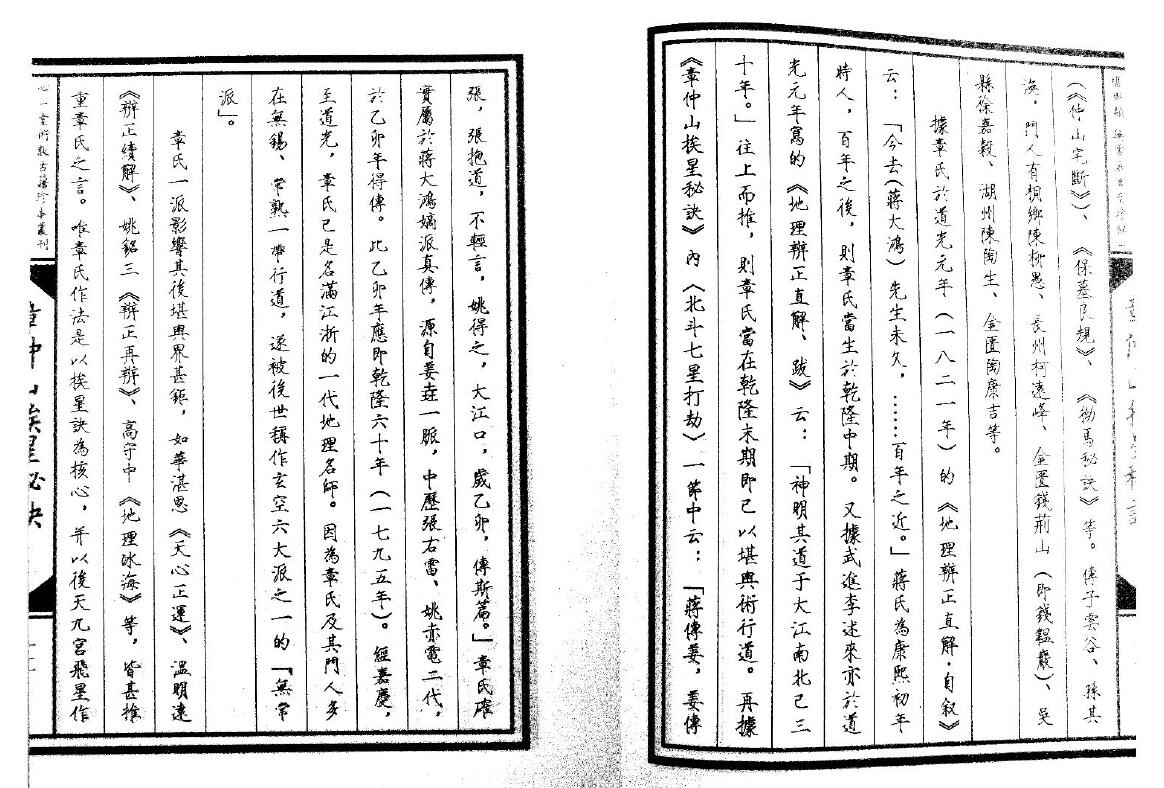 《仲山宅斷》、《保墓良規》、《㧾馬秘訣》等。傳子雲谷、孫其
渙,門人有桐鄉陳柳愚、長州柯遠峰、金匱錢荊山(即錢韞巖)、吳
縣徐嘉穀、湖州陳陶生、金匱陶康吉等。
據章氏於道光元年(一八二一年)的《地理辨正直解·自叙》
云:「今去(蔣大鴻)先生未久,……百年之近。」蔣氏為康熙初年
時人,百年之後,則章氏當生於乾隆中期。又據武進李述來亦於道
光元年寫的《地理辨正直解、跋》云:「神明其道于大江南北已三
十年。」往上而推,則章氏當在乾隆末期即已以堪輿術行道。再據
《章仲山挨星秘訣》內〈北斗七星打劫〉一節中云:「蔣傳姜,姜傳
張,張抱道,不輕言,姚得之,大江口,歲乙卯,傳斯篇。」章氏確
實屬於蔣大鴻嫡派真傳,源自姜垚一脈,中歷張右雷、姚赤電二代,
於乙卯年得傳。此乙卯年應即乾隆六十年(一七九五年)。經嘉慶,
至道光,章氏已是名滿江浙的一代地理名師。因為章氏及其門人多
在無錫、常熟一帶行道,遂被後世稱作玄空六大派之一的「無常
派」。
章氏一派影響其後堪輿界甚鉅,如華湛恩《天心正運》、溫明遠
《辨正續解》、姚銘三《辨正再辨》、高守中《地理冰海》等,皆甚推
重章氏之言。唯章氏作法是以挨星訣為核心,并以後天九宮飛星作
心一堂術數古籍珍本叢刊
章仲山挨星秘訣